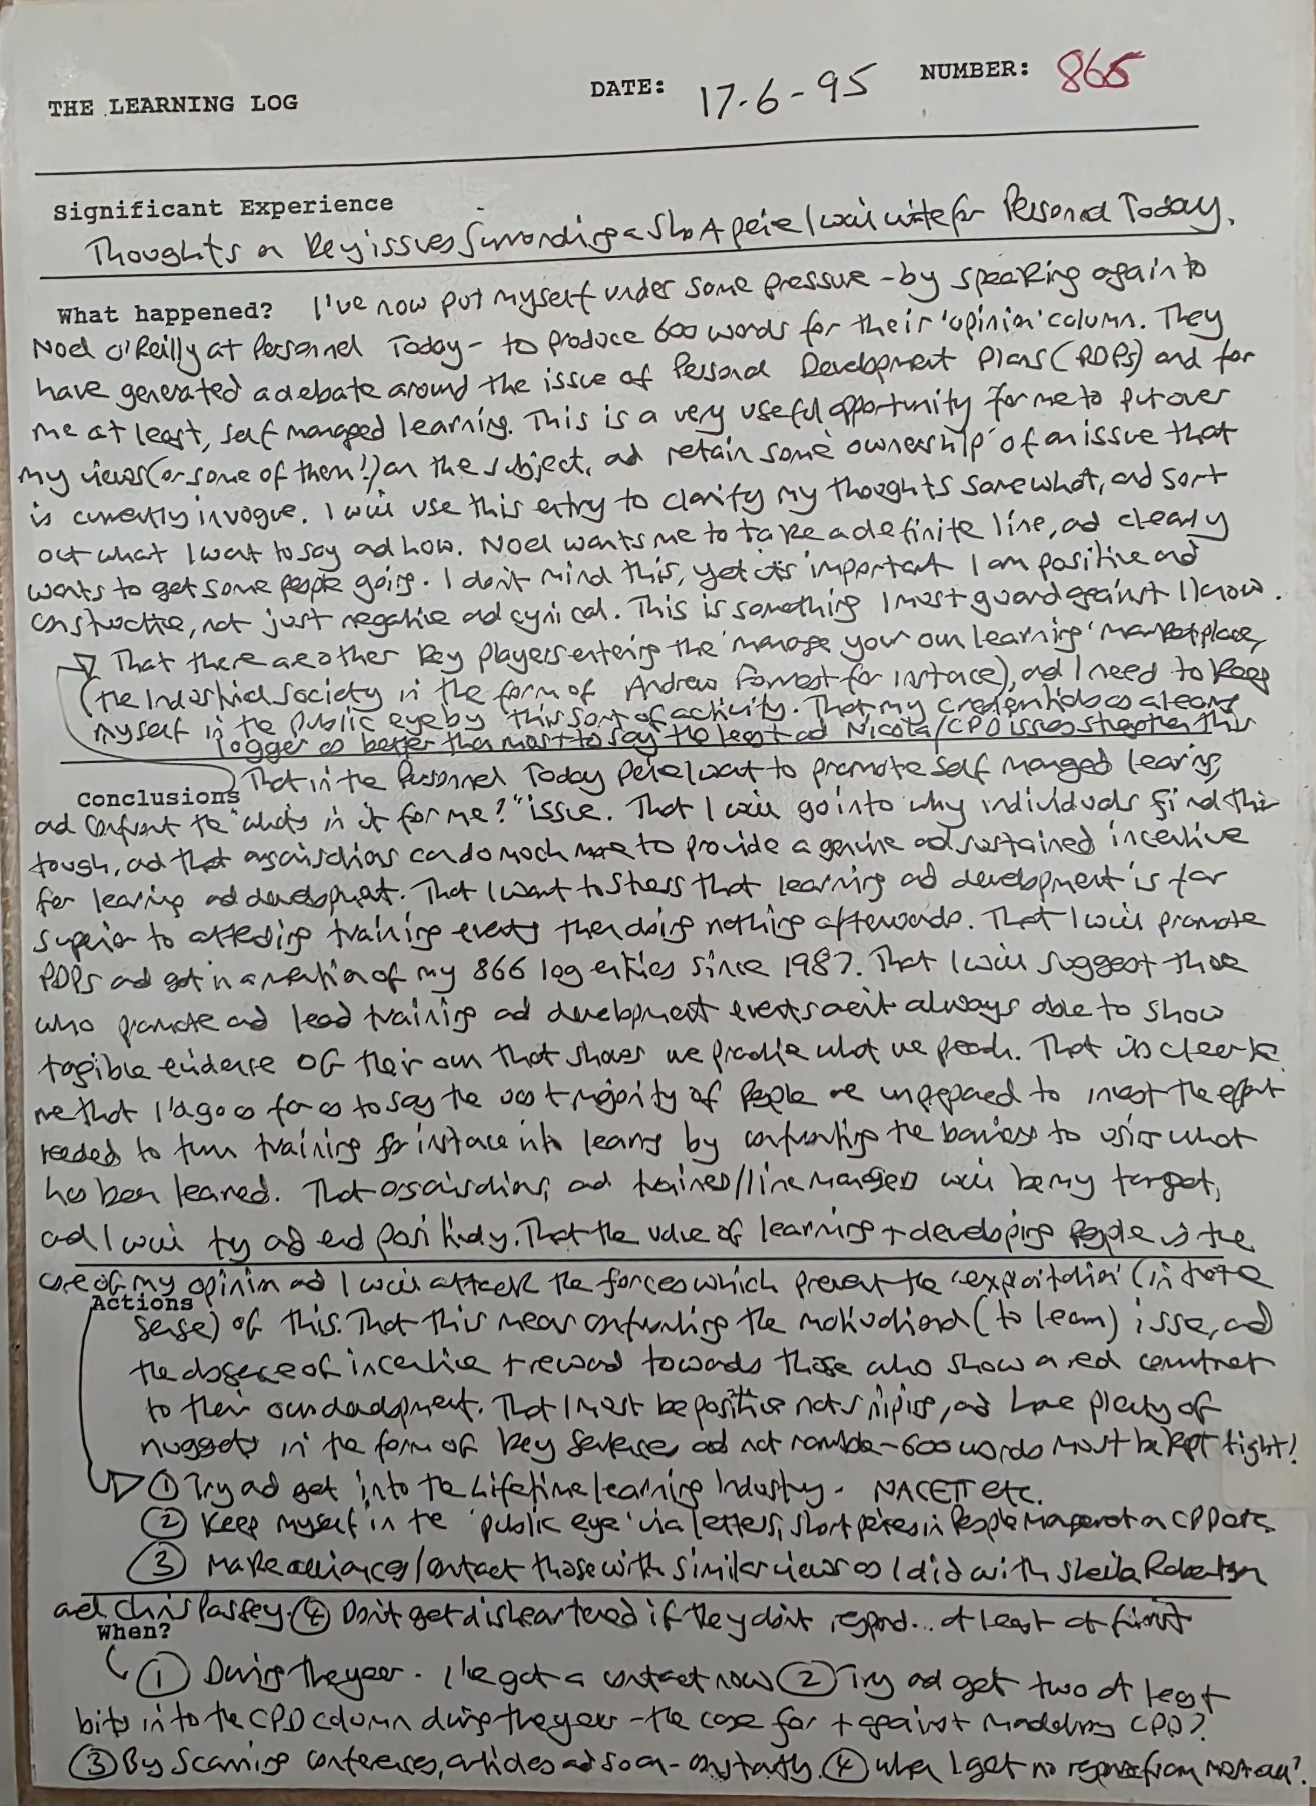 THE LEARNING LOG
DATE: 17-6-95 NUMBER: 865
Significant Experience
Thoughts on Key issues surrounding a short piece I will write for Personnel Today.
What happened? I've now put myself under some pressure - by speaking again to
Noel O'Reilly at Personnel Today - to produce 600 words for their 'opinion' column. They
have generated a debate around the issue of Personal Development Plans (PDPs) and for
me at least, self managed learning. This is a very useful opportunity for me to put over
my views (or some of them!) on the subject, and retain some 'ownership' of an issue that
is currently in vogue. I will use this entry to clarify my thoughts somewhat, and sort
out what I want to say and how. Noel wants me to take a definite line, and clearly
wants to get some people going. I don't mind this, yet it's important I am positive and
constructive, not just negative and cynical. This is something I must guard against I know.
That there are other key players entering the 'manage your own learning' marketplace,
(the Industrial Society in the form of Andrew Forrest for instance), and I need to keep
myself in the public eye by this sort of activity. That my credentials as a learning
logger as better than most to say the least and Nicola/CPD issues strengthen this
That in the Personnel Today piece I want to promote self managed learning,
Conclusions
and confront the "what's in it for me?" issue. That I will go into why individuals find this
tough, and that organisations can do much more to provide a genuine and sustained incentive
for learning and development. That I want to stress that learning and development is far
superior to attending training events then doing nothing afterwards. That I will promote
PDPs and get in a mention of my 866 log entries since 1987. That I will suggest those
who promote and lead training and development events aren't always able to show
tangible evidence of their own that shows we practice what we preach. That it is clear to
me that I'd go as far as to say the vast majority of people are unprepared to invest the effort
needed to turn training for instance into learning by confronting the barriers to using what
has been learned. That organisations, and trainers/line managers will be my target,
and I will try and end positively. That the value of learning + developing people is the
core of my opinion and I will attack the forces which prevent the 'exploitation' (in
Actions
sense) of this. That this means confronting the motivational (to learn) issue, and
the absence of incentive + reward towards those who show a real commitment
to their own development. That I must be positive not sniping, and have plenty of
nuggets in the form of key sentences and not ramble - 600 words must be kept tight!
① Try and get into the lifetime learning Industry - NACETT etc.
② Keep myself in the 'public eye' via letters, short pieces in People Management on CPD etc.
③ Make alliances/contact those with similar views as I did with Sheila Robertson
and Chris Passey. ④ Don't get disheartened if they don't respond... at least at first
When?
① During the year. I've got a contact now ② Try and get two at least
bits into the CPD column during the year - the case for + against mandatory CPD?
③ By scanning conferences, articles and so on - constantly. ④ When I get no response from most all?.